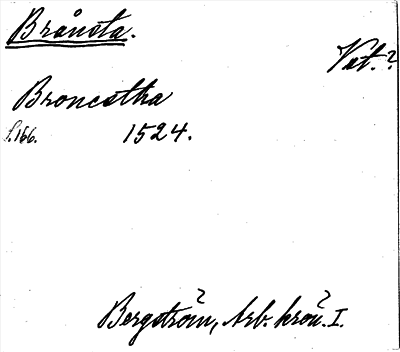 Brånsta.
Vst.?
Broncstha
s. 166. 1524.
Bergström, Arb. krön. I.